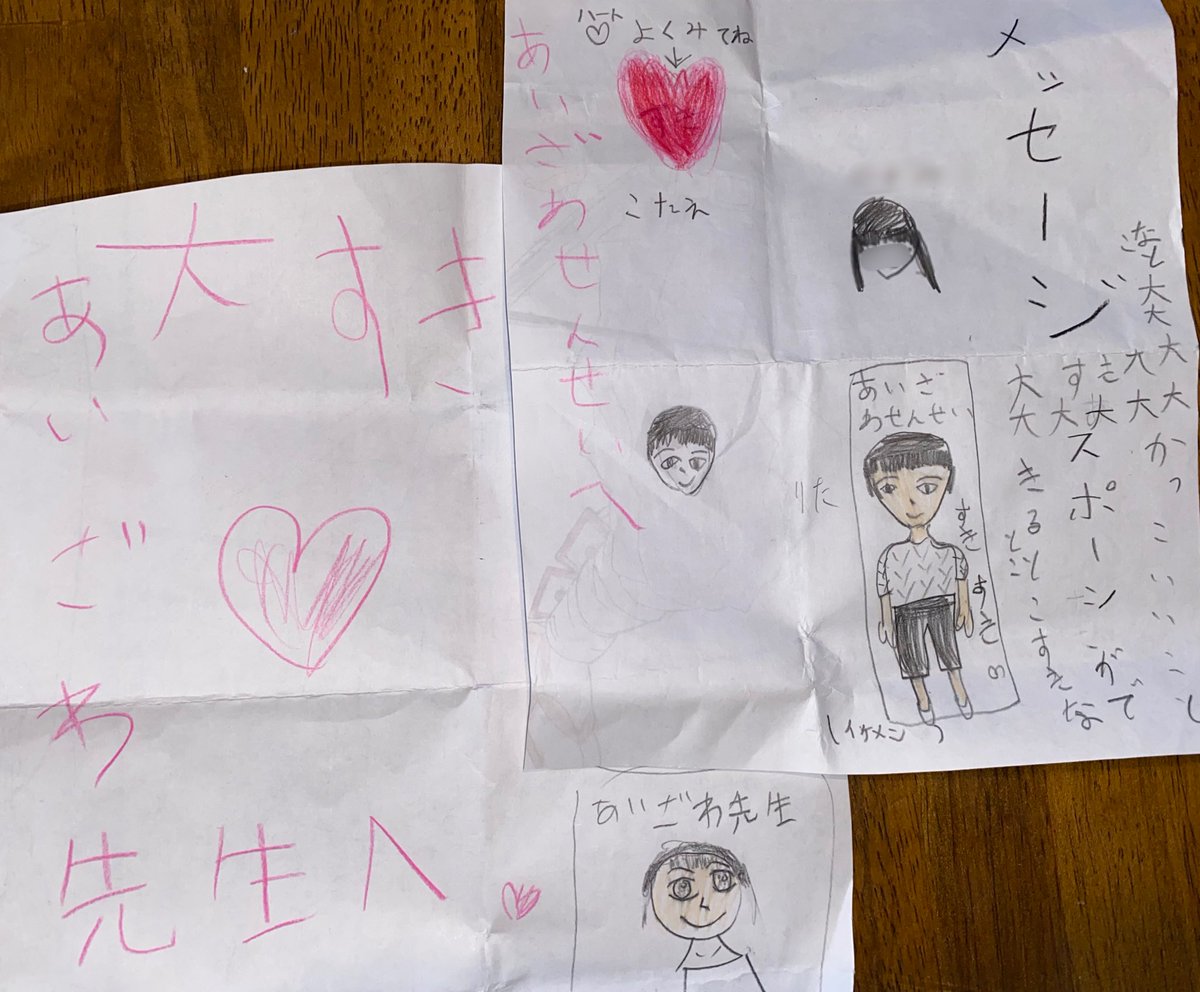 メッセージ
大大大大
かっこいいこと
スポーツができるとこ
すきなとこ
あいざ
わせんせい
すき
すき
イケメン
りた
ハート
よくみてね
すき
こたえ
あいざわせんせいへ
大すき
あいざわ
先生へ
あいざわ先生